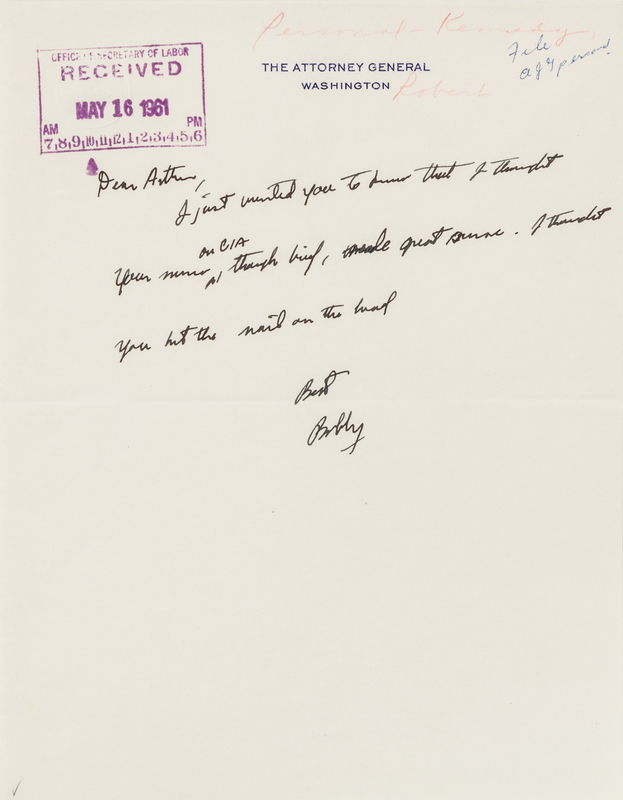 Personal - Kennedy,
Robert
File
AJG personal
OFFICE OF SECRETARY OF LABOR
RECEIVED
MAY 16 1961
AM PM
7,8,9,10,11,12,1,2,3,4,5,6
THE ATTORNEY GENERAL
WASHINGTON
Dear Arthur,
I just wanted you to know that I thought
on CIA
your memo, though brief, made great sense. I thought
you hit the nail on the head
Best
Bobby